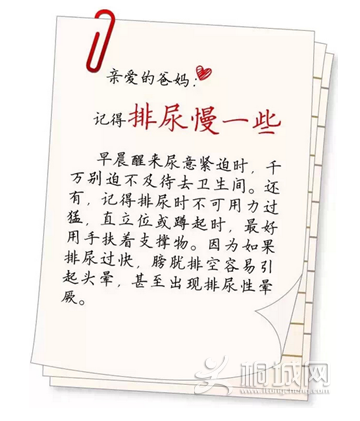 亲爱的爸妈:
记得排尿慢一些
早晨醒来尿意紧迫时，千
万别迫不及待去卫生间。还
有，记得排尿时不可用力过
猛，直立位或蹲起时，最好
用手扶着支撑物。因为如果
排尿过快，膀胱排空容易引
起头晕，甚至出现排尿性晕
厥。
桐城网
www.itongcheng.com